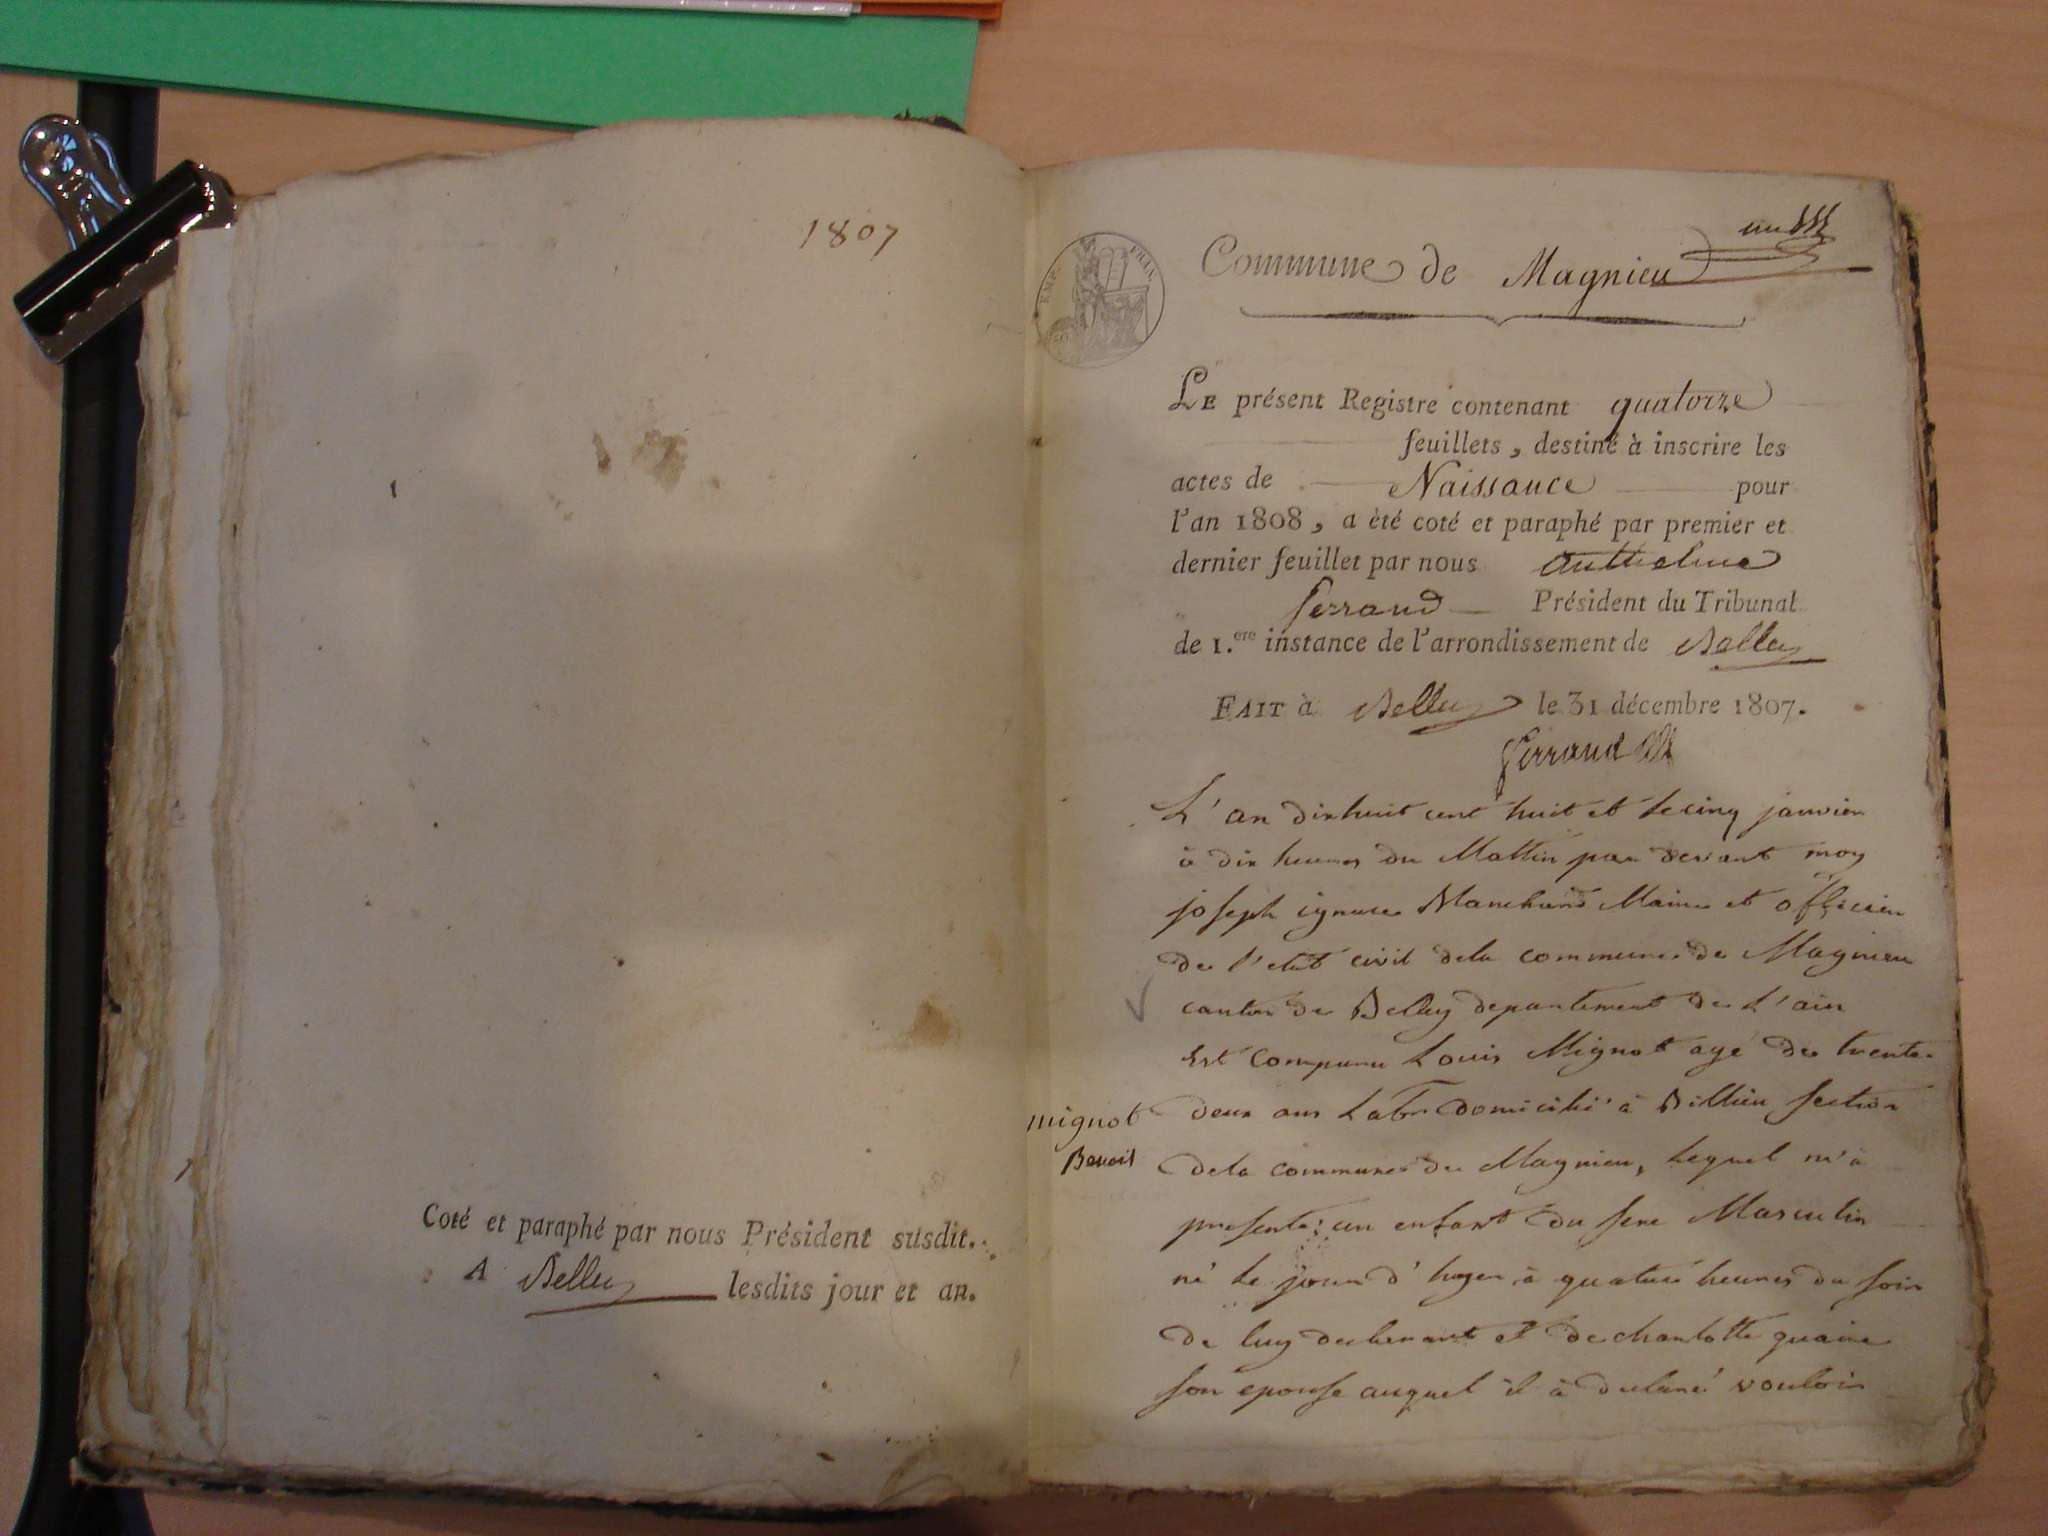 1807
Coté et paraphé par nous Président susdit.
A Belley lesdits jour et an.
EMP. FRAN.
un
Commune de Magnieu
LE présent Registre contenant quatorze
feuillets, destiné à inscrire les
actes de Naissance pour
l'an 1808, a été coté et paraphé par premier et
dernier feuillet par nous anthelme
ferrand Président du Tribunal
de 1.ere instance de l'arrondissement de Belley
FAIT à Belley le 31 décembre 1807.
ferrand
L'an dixhuit cent huit et le cinq janvier
à dix heures du Mattin par devant moy
joseph ignace Marchand Maire et officier
de l'etat civil dela commune de Magnieu
canton de Belley departement de L'ain
Est comparu Louis Mignot agé de trente
deux ans Labr domicilié à Billieu section
dela commune de Magnieu, Lequel m'à
presenté un enfant du sexe Masculin
né Le jour d'hyer à quatre heures du soir
de luy declarant et de charlotte quaire
son epouse auquel il à declaré vouloir
mignot
Benoit